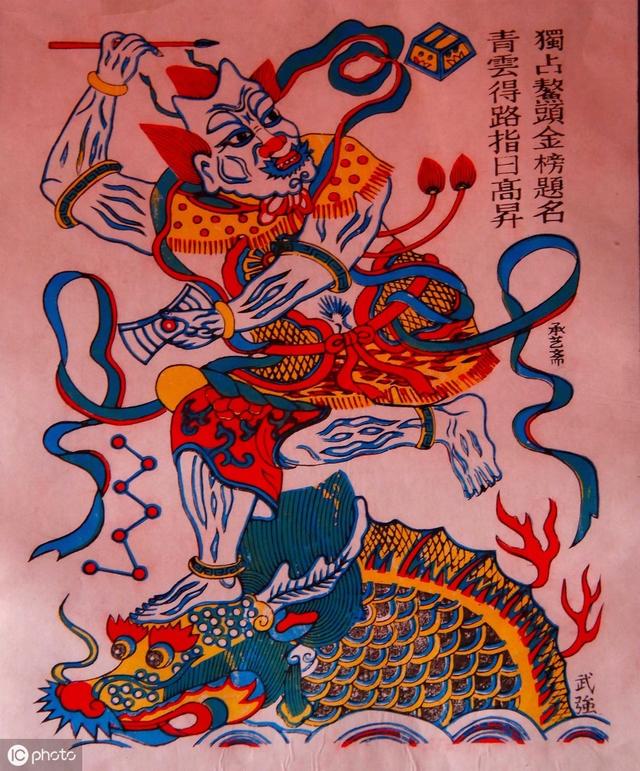 獨占鰲頭金榜題名
青雲得路指日高昇
承艺斋
武強
iC photo